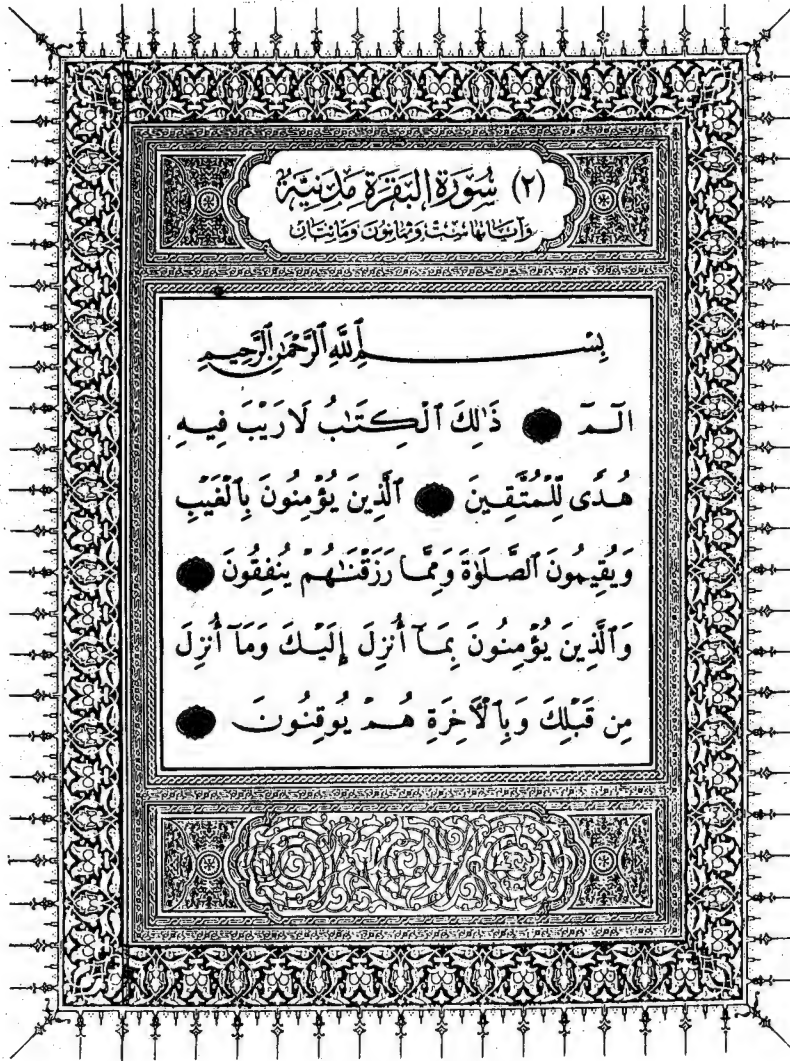 (٢) سُورَةُ الْبَقَرَةِ مَدَنِيَّةٌ
وَآيَاتُهَا سِتٌّ وَثَمَانُونَ وَمَائَتَانِ
بِسْمِ ٱللَّهِ ٱلرَّحْمَٰنِ ٱلرَّحِيمِ
الٓمٓ ذَٰلِكَ ٱلْكِتَٰبُ لَا رَيْبَ فِيهِ
هُدًى لِّلْمُتَّقِينَ ٱلَّذِينَ يُؤْمِنُونَ بِٱلْغَيْبِ
وَيُقِيمُونَ ٱلصَّلَوٰةَ وَمِمَّا رَزَقْنَٰهُمْ يُنفِقُونَ
وَٱلَّذِينَ يُؤْمِنُونَ بِمَآ أُنزِلَ إِلَيْكَ وَمَآ أُنزِلَ
مِن قَبْلِكَ وَبِٱلْأَخِرَةِ هُمْ يُوقِنُونَ